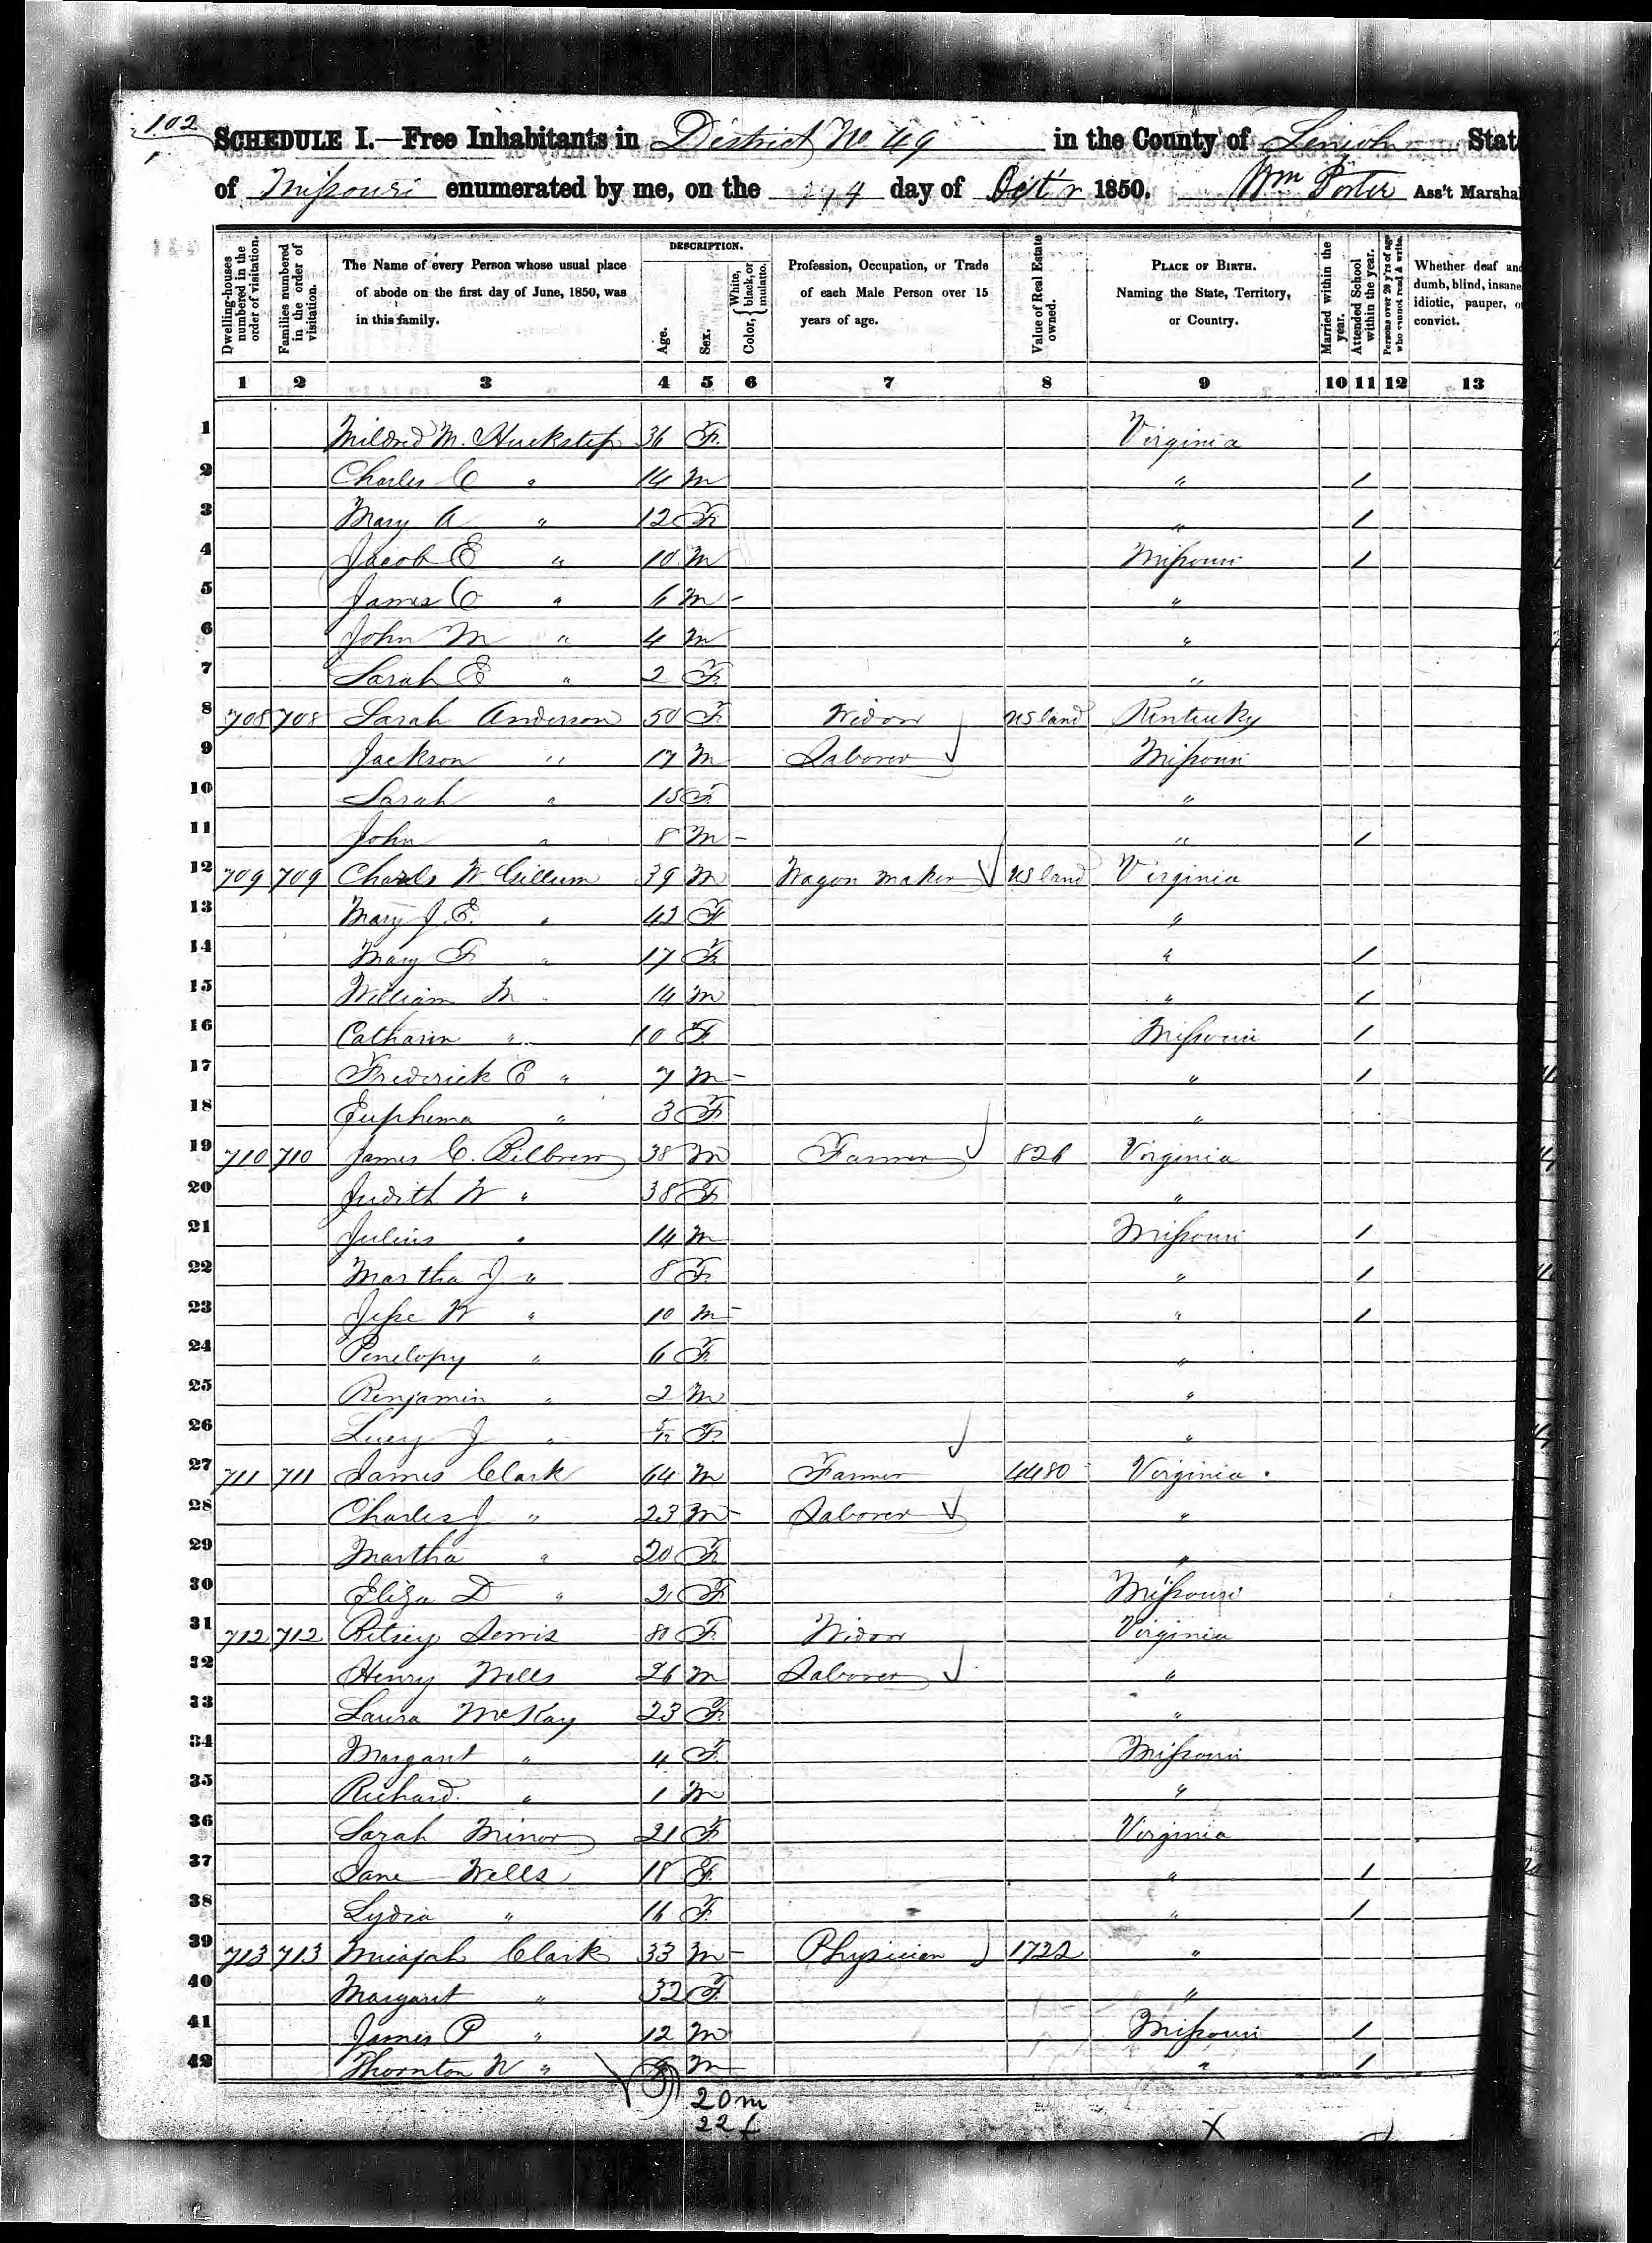 102
SCHEDULE I.—Free Inhabitants in District No 49 in the County of Lincoln State
of Missouri enumerated by me, on the day of Oct'r 1850. Wm Porter Ass't Marshal
Dwelling-houses numbered in the order of visitation.
Families numbered in the order of visitation.
The Name of every Person whose usual place of abode on the first day of June, 1850, was in this family.
DESCRIPTION.
Age.
Sex.
Color, { White, black, or mulatto.
Profession, Occupation, or Trade of each Male Person over 15 years of age.
Value of Real Estate owned.
PLACE OF BIRTH. Naming the State, Territory, or Country.
Married within the year.
Attended School within the year.
Persons over 20 y'rs of age who cannot read & write.
Whether deaf and dumb, blind, insane, idiotic, pauper, or convict.
1 2 3 4 5 6 7 8 9 10 11 12 13
1 Mildred M. Huckstep 36 F Virginia
2 Charles C " 14 M " /
3 Mary A " 12 F " /
4 Jacob E " 10 M Missouri /
5 James C " 6 M "
6 John M " 4 M "
7 Sarah E " 2 F "
8 708 708 Sarah Anderson 50 F Widow US land Kentucky
9 Jackson " 17 M Laborer Missouri
10 Sarah " 15 F "
11 John " 8 M " /
12 709 709 Charls W Gillum 39 M Wagon maker US land Virginia
13 Mary J. E. " 42 F "
14 Mary F " 17 F " /
15 William M " 14 M " /
16 Catharin " 10 F Missouri /
17 Frederick C " 7 M " /
18 Euphema " 3 F "
19 710 710 James C. Bilbrew 38 M Farmer 826 Virginia
20 Judith W " 38 F "
21 Julius " 14 M Missouri /
22 Martha J " 8 F " /
23 Jesse W " 10 M " /
24 Penelopy " 6 F "
25 Benjamin " 2 M "
26 Lucy J " F "
27 711 711 James Clark 64 M Farmer 4480 Virginia
28 Charles J " 23 M Laborer "
29 Martha " 20 F "
30 Eliza D " 2 F Missouri
31 712 712 Betsey Lewis 80 F Widow Virginia
32 Henry Wells 26 M Laborer "
33 Laura McKay 23 F "
34 Margaret " 4 F Missouri
35 Richard " 1 M "
36 Sarah Minor 21 F Virginia
37 Jane Wells 18 F " /
38 Lydia " 16 F " /
39 713 713 Micajah Clark 33 M Physician 1722 "
40 Margaret " 32 F "
41 James P " 12 M Missouri /
42 Thornton W " M " /
20 m
22 f